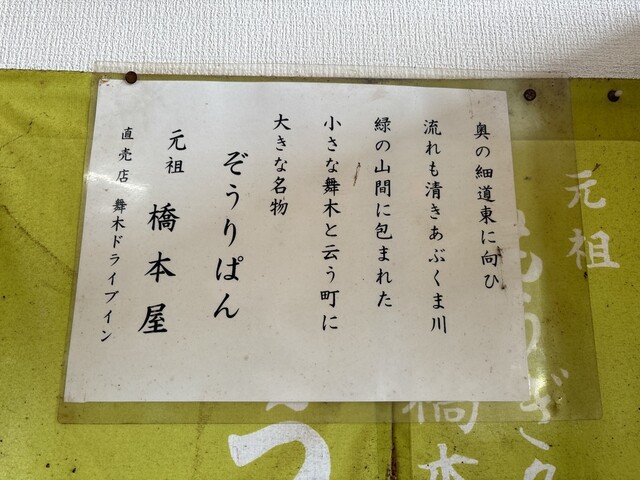 奥の細道東に向ひ
流れも清きあぶくま川
緑の山間に包まれた
小さな舞木と云う町に
大きな名物
ぞうりぱん
元祖 橋本屋
直売店 舞木ドライブイン
元祖